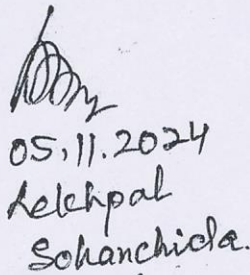 05.11.2024
Lekhpal
Sohanchida.